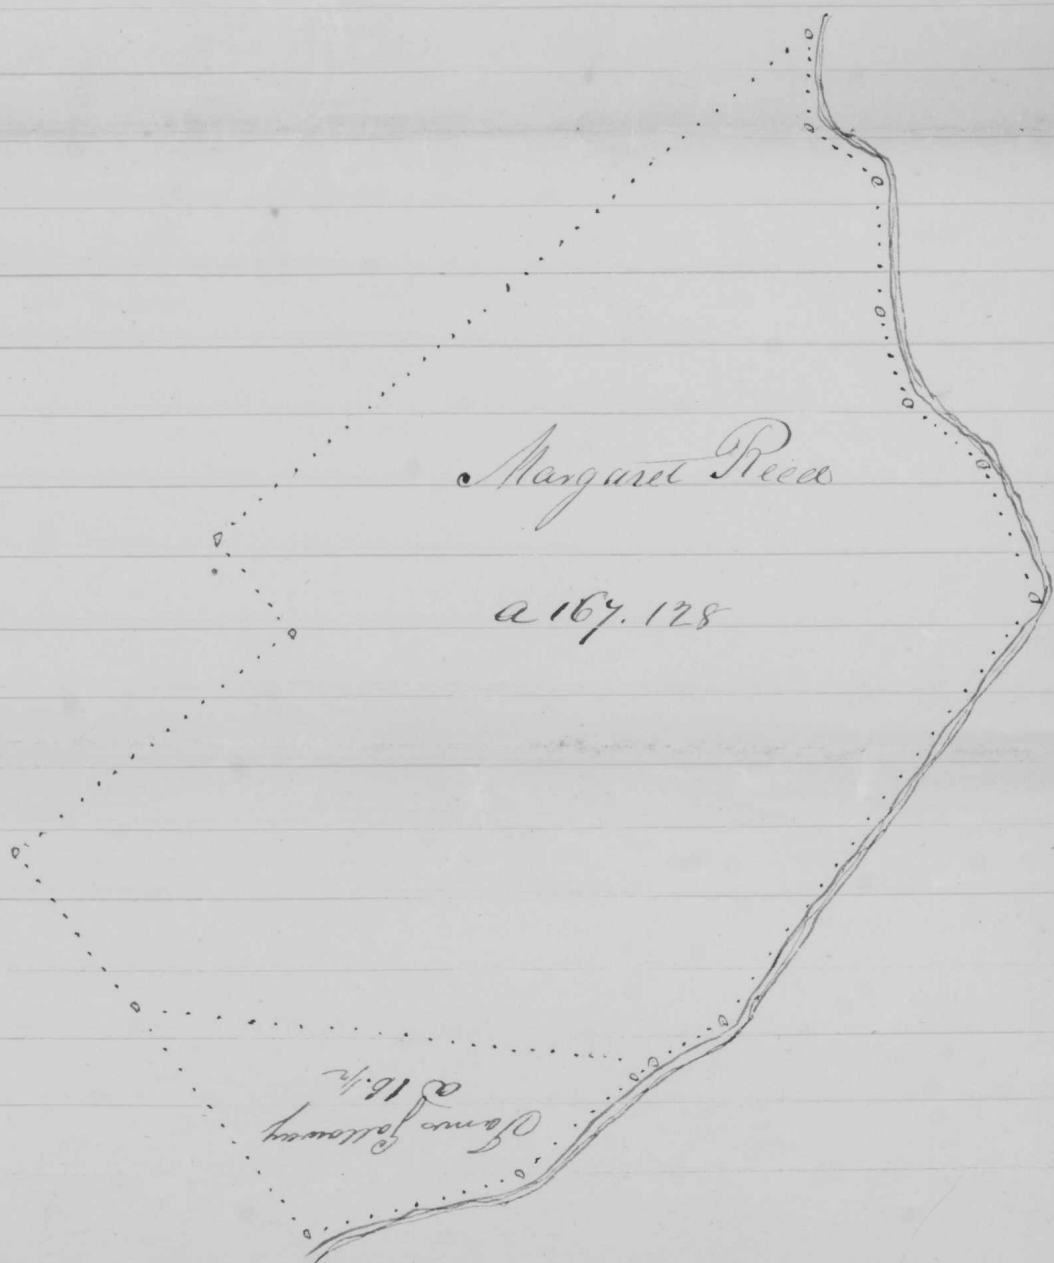 Margaret Reed
a 167. 128
James Gallaway
a 18 1/2